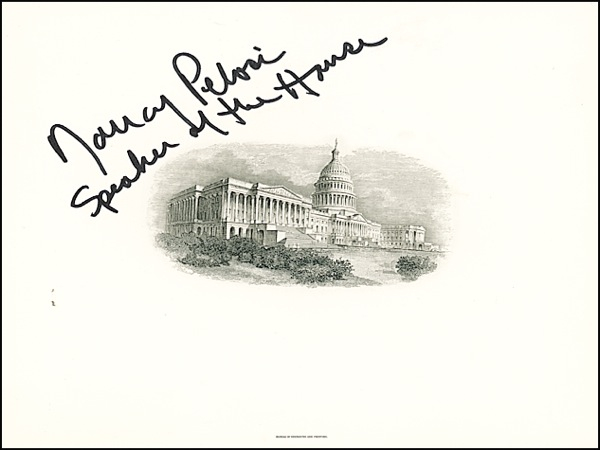 Nancy Pelosi
Speaker of the House
BUREAU OF ENGRAVING AND PRINTING